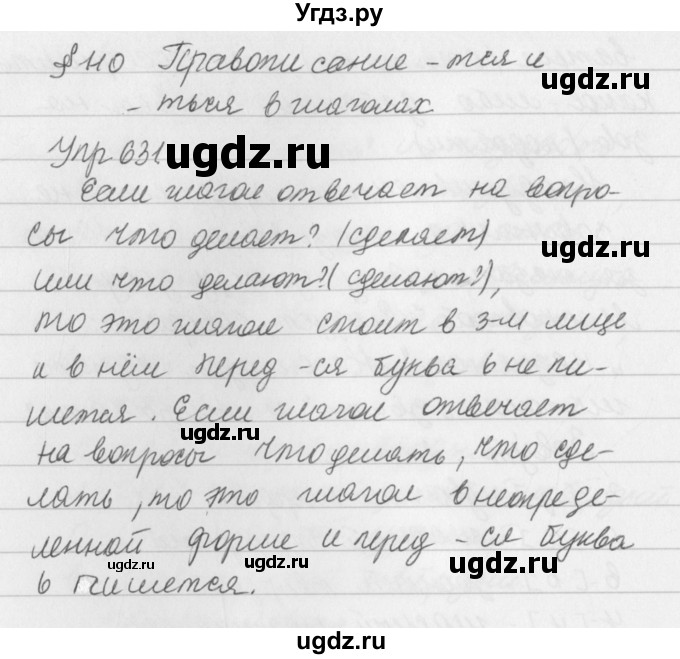 Угдз.ру
§ 110 Правописание -тся и
ugdz.ru
-ться в глаголах
ugdz.ru
Упр 631
ugdz.ru
Если глагол отвечает на вопро-
сы что делает? (сделает)
ugdz.ru
или что делают? (сделают?),
то это глагол стоит в 3-м лице
и в нём перед -ся буква ь не пи-
шется. Если глагол отвечает
ugdz.ru
на вопросы что делать, что сде-
лать, то это глагол в неопреде-
ленной форме и перед -ся буква
ugdz.ru
ugdz.ru
ь пишется.
ugdz.ru